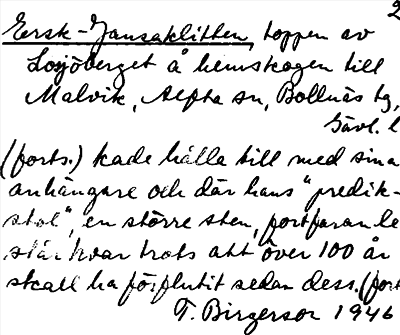 2
Ersk-Jansaklitten, toppen av
Losjöberget å hemskogen till
Malvik, Alfta sn, Bollnäs tg,
Gävl. l
(forts.) kade hålla till med sina
anhängare och där hans "predik-
stol", en större sten, fortfarande
står kvar trots att över 100 år
skall ha förflutit sedan dess. (fort
T. Birgerson 1946